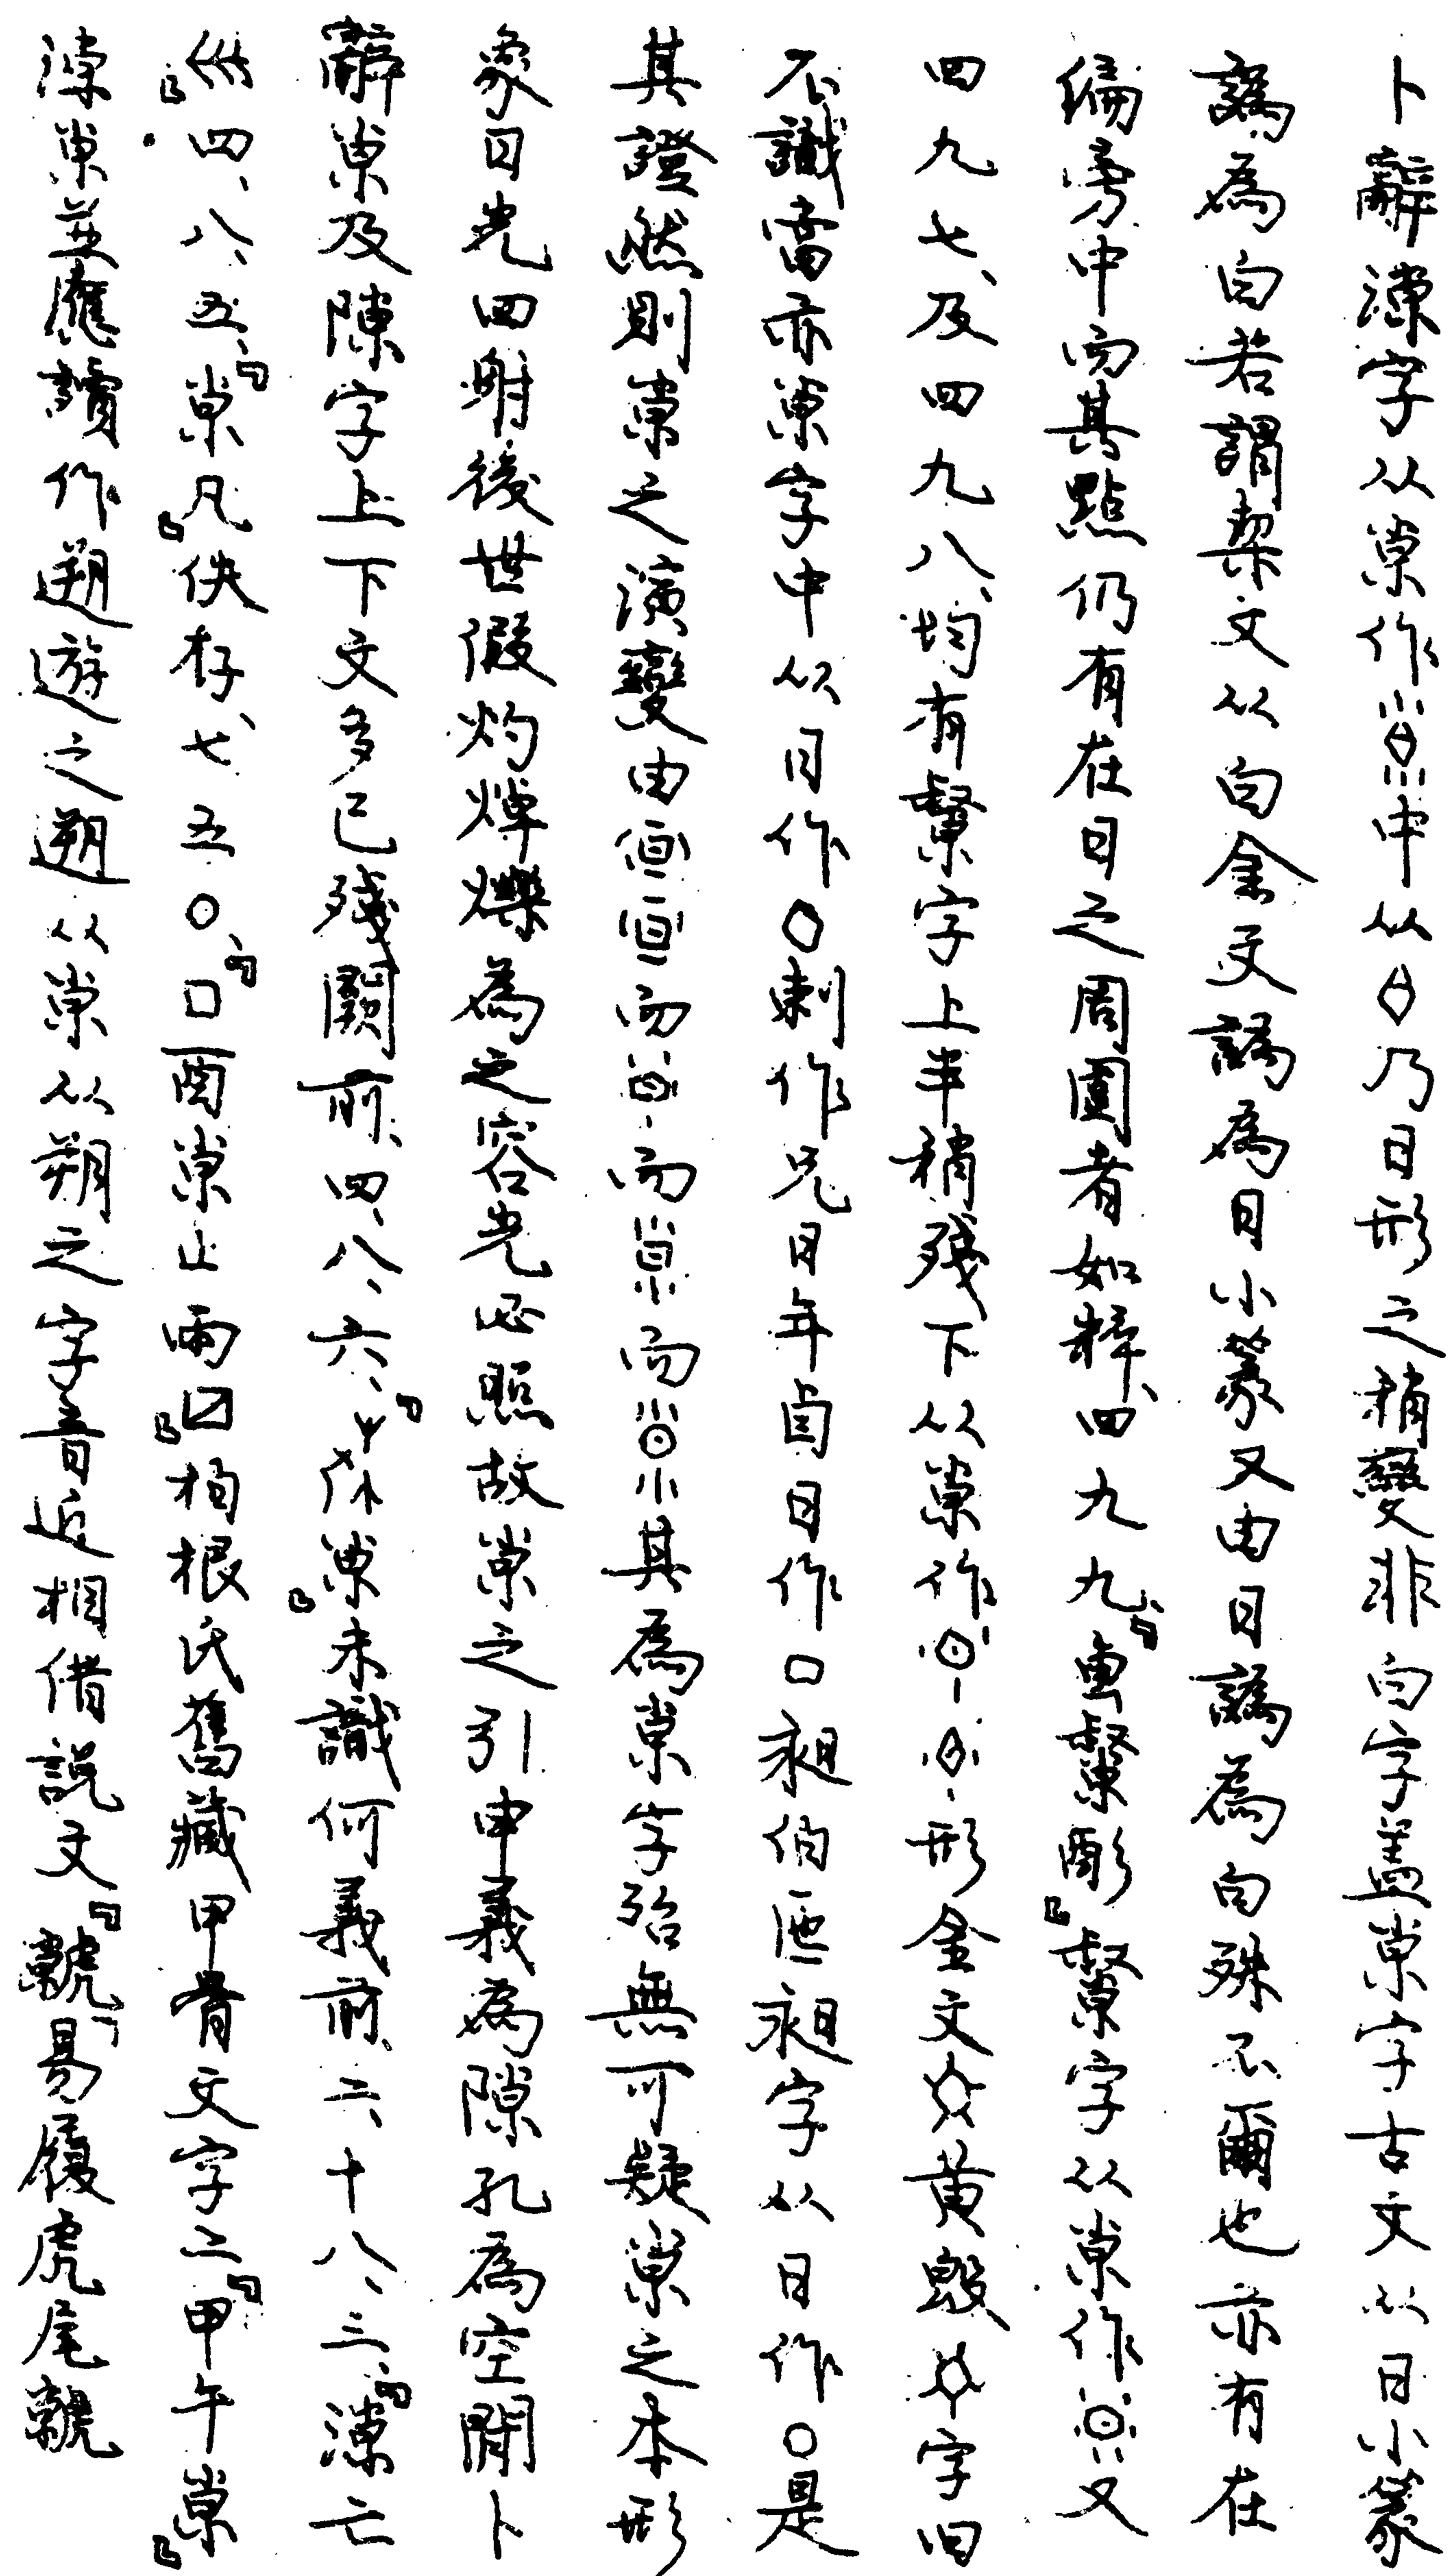 卜辭㵐字从㡀作中从乃日形之稍變非白字蓋㡀字古文从日小篆
譌為白若謂栔文从白金文譌為日小篆又由日譌為白殊不爾也亦有在
偏旁中而其點仍有在日之周圍者如粹、四九九、「叀䵻彫」䵻字从㡀作又
四九七、及四九八、均有䵻字上半稍殘下从㡀作形金文黃㲃字旧
不識當亦㡀字中从日作〇剌作兄日年卣日作口昶伯匜昶字从日作〇是
其證然則㡀之演變由而而而其為㡀字殆無可疑㡀之本形
象日光四射後世假灼焯爍為之容光必照故㡀之引申義為隙孔為空閒卜
辭㡀及隙字上下文多已殘闕前、四、八、六、「㡀」未識何義前、六、十八、三、「㵐亡
巛」四、八、五、「㡀凡」佚存、七五〇、「囗酉㡀止雨囗」柏根氏舊藏甲骨文字二「甲午㡀」
㵐㡀並應讀作遡遊之遡从㡀从朔之字音近相借說文「虩」易履虎尾虩